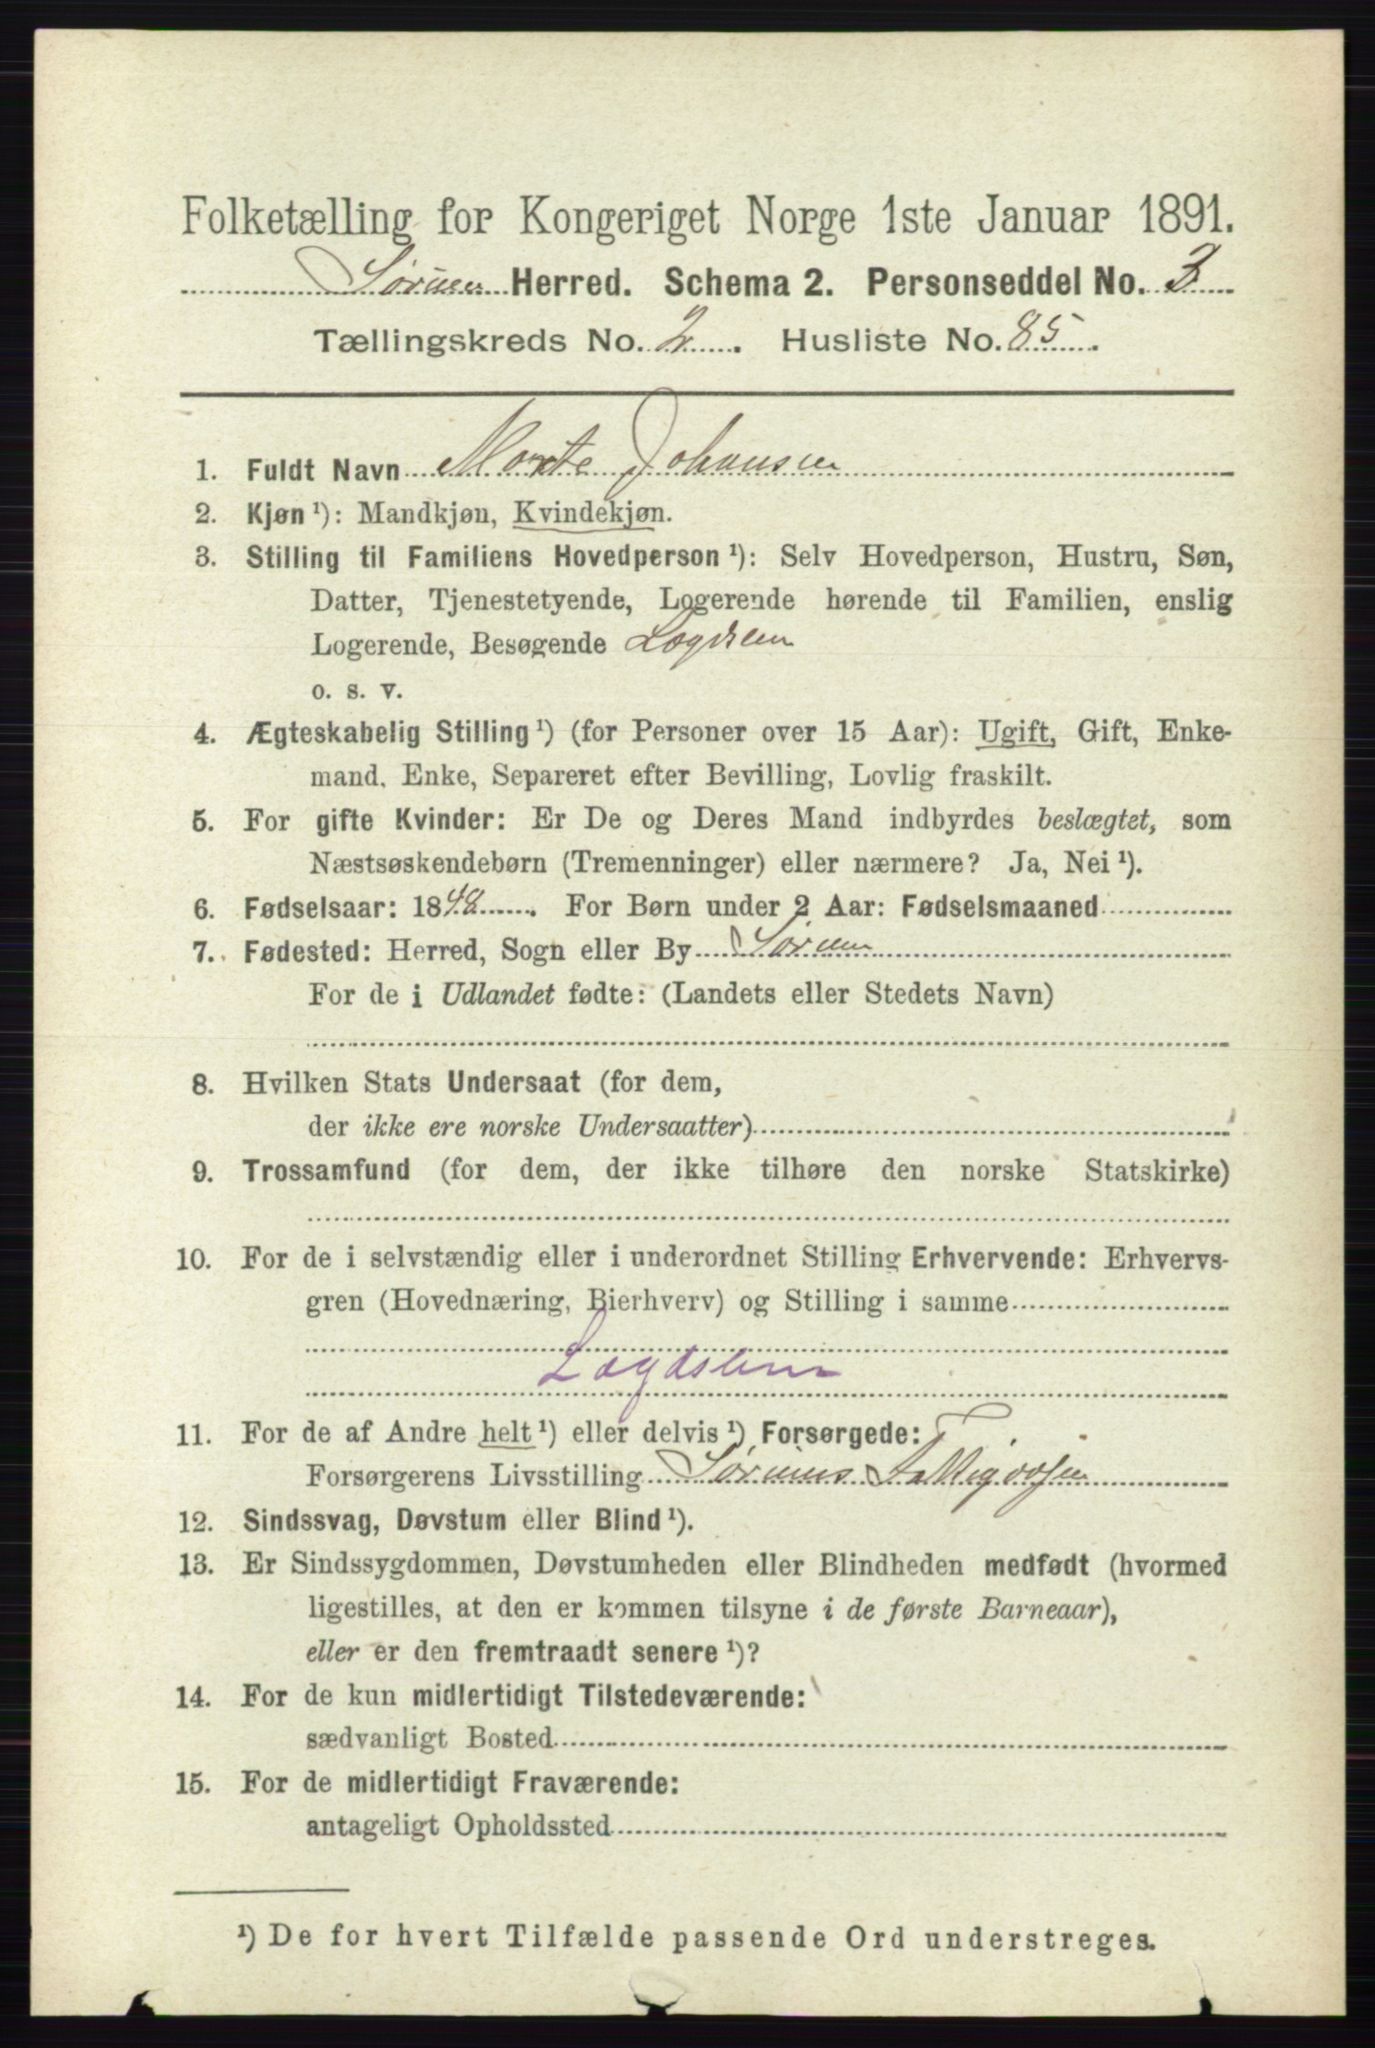 Folketælling for Kongeriget Norge 1ste Januar 1891.
Sørum Herred. Schema 2. Personseddel No. 3
Tællingskreds No. 2. Husliste No. 85.
1. Fuldt Navn Marte Johansen
2. Kjøn ¹): Mandkjøn, Kvindekjøn.
3. Stilling til Familiens Hovedperson ¹): Selv Hovedperson, Hustru, Søn,
Datter, Tjenestetyende, Logerende hørende til Familien, enslig
Logerende, Besøgende Lægdslem
o. s. v.
4. Ægteskabelig Stilling ¹) (for Personer over 15 Aar): Ugift, Gift, Enke-
mand, Enke, Separeret efter Bevilling, Lovlig fraskilt.
5. For gifte Kvinder: Er De og Deres Mand indbyrdes beslægtet, som
Næstsøskendebørn (Tremenninger) eller nærmere? Ja, Nei ¹).
6. Fødselsaar: 1848. For Børn under 2 Aar: Fødselsmaaned
7. Fødested: Herred, Sogn eller By Sørum
For de i Udlandet fødte: (Landets eller Stedets Navn)
8. Hvilken Stats Undersaat (for dem,
der ikke ere norske Undersaatter)
9. Trossamfund (for dem, der ikke tilhøre den norske Statskirke)
10. For de i selvstændig eller i underordnet Stilling Erhvervende: Erhvervs-
gren (Hovednæring, Bierhverv) og Stilling i samme
Lægdslem
11. For de af Andre helt ¹) eller delvis ¹) Forsørgede:
Forsørgerens Livsstilling Sørums Fattigvæsen
12. Sindssvag, Døvstum eller Blind ¹).
13. Er Sindssygdommen, Døvstumheden eller Blindheden medfødt (hvormed
ligestilles, at den er kommen tilsyne i de første Barneaar),
eller er den fremtraadt senere ¹)?
14. For de kun midlertidigt Tilstedeværende:
sædvanligt Bosted
15. For de midlertidigt Fraværende:
antageligt Opholdssted
¹) De for hvert Tilfælde passende Ord understreges.